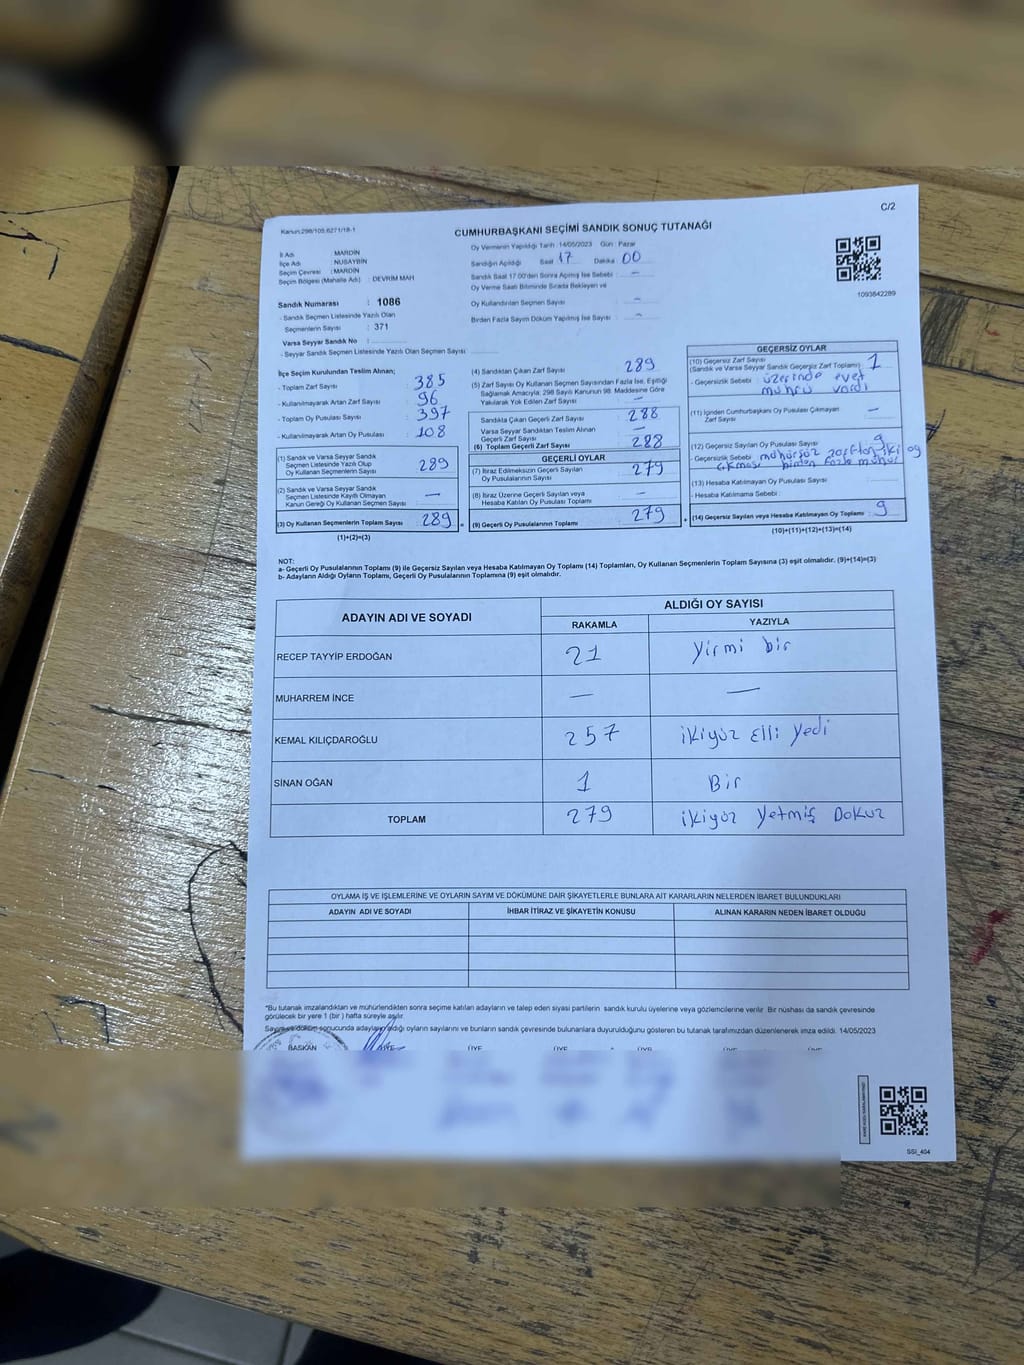 C/2
Kanun:298/105,6271/18-1
CUMHURBAŞKANI SEÇİMİ SANDIK SONUÇ TUTANAĞI
İl Adı : MARDİN
İlçe Adı : NUSAYBİN
Seçim Çevresi : MARDİN
Seçim Bölgesi (Mahalle Adı) : DEVRİM MAH
Sandık Numarası : 1086
- Sandık Seçmen Listesinde Yazılı Olan
Seçmenlerin Sayısı : 371
Varsa Seyyar Sandık No :
- Seyyar Sandık Seçmen Listesinde Yazılı Olan Seçmen Sayısı :
Oy Vermenin Yapıldığı Tarih : 14/05/2023 Gün : Pazar
Sandığın Açıldığı Saat 17 Dakika 00
Sandık Saat 17:00'den Sonra Açılmış İse Sebebi : –
Oy Verme Saati Bitiminde Sırada Bekleyen ve
Oy Kullandırılan Seçmen Sayısı : –
Birden Fazla Sayım Döküm Yapılmış İse Sayısı : –
1093842289
İlçe Seçim Kurulundan Teslim Alınan;
- Toplam Zarf Sayısı : 385
- Kullanılmayarak Artan Zarf Sayısı : 96
- Toplam Oy Pusulası Sayısı : 397
- Kullanılmayarak Artan Oy Pusulası : 108
(1) Sandık ve Varsa Seyyar Sandık
Seçmen Listesinde Yazılı Olup
Oy Kullanan Seçmenlerin Sayısı : 289
(2) Sandık ve Varsa Seyyar Sandık
Seçmen Listesinde Kayıtlı Olmayan
Kanun Gereği Oy Kullanan Seçmen Sayısı : –
(3) Oy Kullanan Seçmenlerin Toplam Sayısı : 289
(1)+(2)=(3)
(4) Sandıktan Çıkan Zarf Sayısı : 289
(5) Zarf Sayısı Oy Kullanan Seçmen Sayısından Fazla İse, Eşitliği
Sağlamak Amacıyla; 298 Sayılı Kanunun 98. Maddesine Göre
Yakılarak Yok Edilen Zarf Sayısı : –
Sandıkta Çıkan Geçerli Zarf Sayısı : 288
Varsa Seyyar Sandıktan Teslim Alınan
Geçerli Zarf Sayısı : –
(6) Toplam Geçerli Zarf Sayısı : 288
GEÇERLİ OYLAR
(7) İtiraz Edilmeksizin Geçerli Sayılan
Oy Pusulası Sayısı : 279
(8) İtiraz Üzerine Geçerli Sayılan veya
Hesaba Katılan Oy Pusulası Toplamı : –
(9) Geçerli Oy Pusulalarının Toplamı : 279
GEÇERSİZ OYLAR
(10) Geçersiz Zarf Sayısı
(Sandık ve Varsa Seyyar Sandık Geçersiz Zarf Toplamı) : 1
- Geçersizlik Sebebi : üzerinde evet
mührü vardı
(11) İçinden Cumhurbaşkanı Oy Pusulası Çıkmayan
Zarf Sayısı : –
(12) Geçersiz Sayılan Oy Pusulası Sayısı : 9
- Geçersizlik Sebebi : mühürsüz zarftan iki oy
çıkması birden fazla mühür
(13) Hesaba Katılmayan Oy Pusulası Sayısı :
- Hesaba Katılmama Sebebi :
(14) Geçersiz Sayılan veya Hesaba Katılmayan Oy Toplamı : 9
(10)+(11)+(12)+(13)=(14)
NOT:
a- Geçerli Oy Pusulalarının Toplamı (9) ile Geçersiz Sayılan veya Hesaba Katılmayan Oy Toplamı (14) Toplamları, Oy Kullanan Seçmenlerin Toplam Sayısına (3) eşit olmalıdır. (9)+(14)=(3)
b- Adayların Aldığı Oyların Toplamı, Geçerli Oy Pusulalarının Toplamına (9) eşit olmalıdır.
ADAYIN ADI VE SOYADI ALDIĞI OY SAYISI
RAKAMLA YAZIYLA
RECEP TAYYİP ERDOĞAN 21 Yirmi bir
MUHARREM İNCE – –
KEMAL KILIÇDAROĞLU 257 ikiyüz Elli Yedi
SİNAN OĞAN 1 Bir
TOPLAM 279 ikiyüz Yetmiş Dokuz
OYLAMA İŞ VE İŞLEMLERİNE VE OYLARIN SAYIM VE DÖKÜMÜNE DAİR ŞİKAYETLERLE BUNLARA AİT KARARLARIN NELERDEN İBARET BULUNDUKLARI
ADAYIN ADI VE SOYADI İHBAR İTİRAZ VE ŞİKAYETİN KONUSU ALINAN KARARIN NEDEN İBARET OLDUĞU
*Bu tutanak imzalandıktan ve mühürlendikten sonra seçime katılan adayların ve talep eden siyasi partilerin sandık kurulu üyelerine veya gözlemcilerine verilir. Bir nüshası da sandık çevresinde
görülecek bir yere 1 (bir ) hafta süreyle asılır.
Sayım ve döküm sonucunda adayların aldığı oyların sayılarını ve bunların sandık çevresinde bulunanlara duyurulduğunu gösteren bu tutanak tarafımızdan düzenlenerek imza edildi. 14/05/2023
BAŞKAN ÜYE ÜYE ÜYE ÜYE ÜYE ÜYE
SSI_404